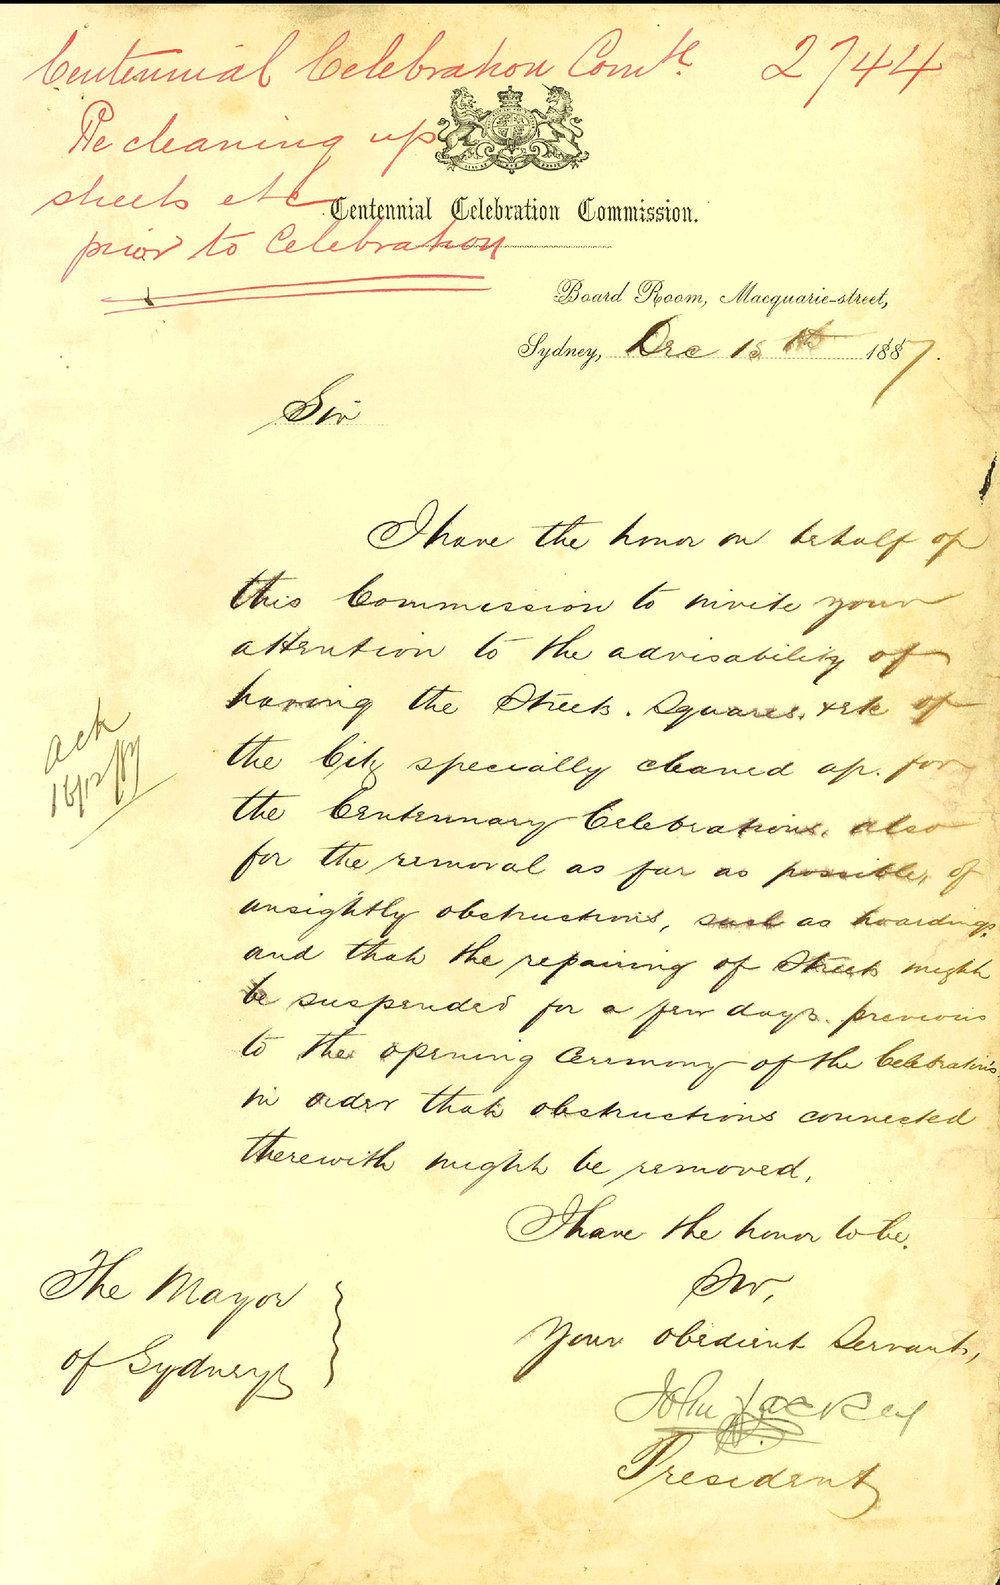 Centennial Celebration Comte 2744
Re cleaning up
streets etc
prior to Celebration
Centennial Celebration Commission.
Board Room, Macquarie-street,
Sydney, Dec 15th 1887.
Sir
I have the honor on behalf of
this Commission to invite your
attention to the advisability of
having the Streets. Squares, &c of
the City specially cleaned up. for
the Centennary Celebrations, also
for the removal as far as possible, of
unsightly obstructions, such as hoardings,
and that the repairing of Streets might
be suspended for a few days. previous
to the opening Ceremony of the Celebrations.
in order that obstructions connected
therewith might be removed.
I have the honor to be.
Sir,
Your obedient Servant,
John Lackey
President
The Mayor
of Sydney
ack
16/12/87